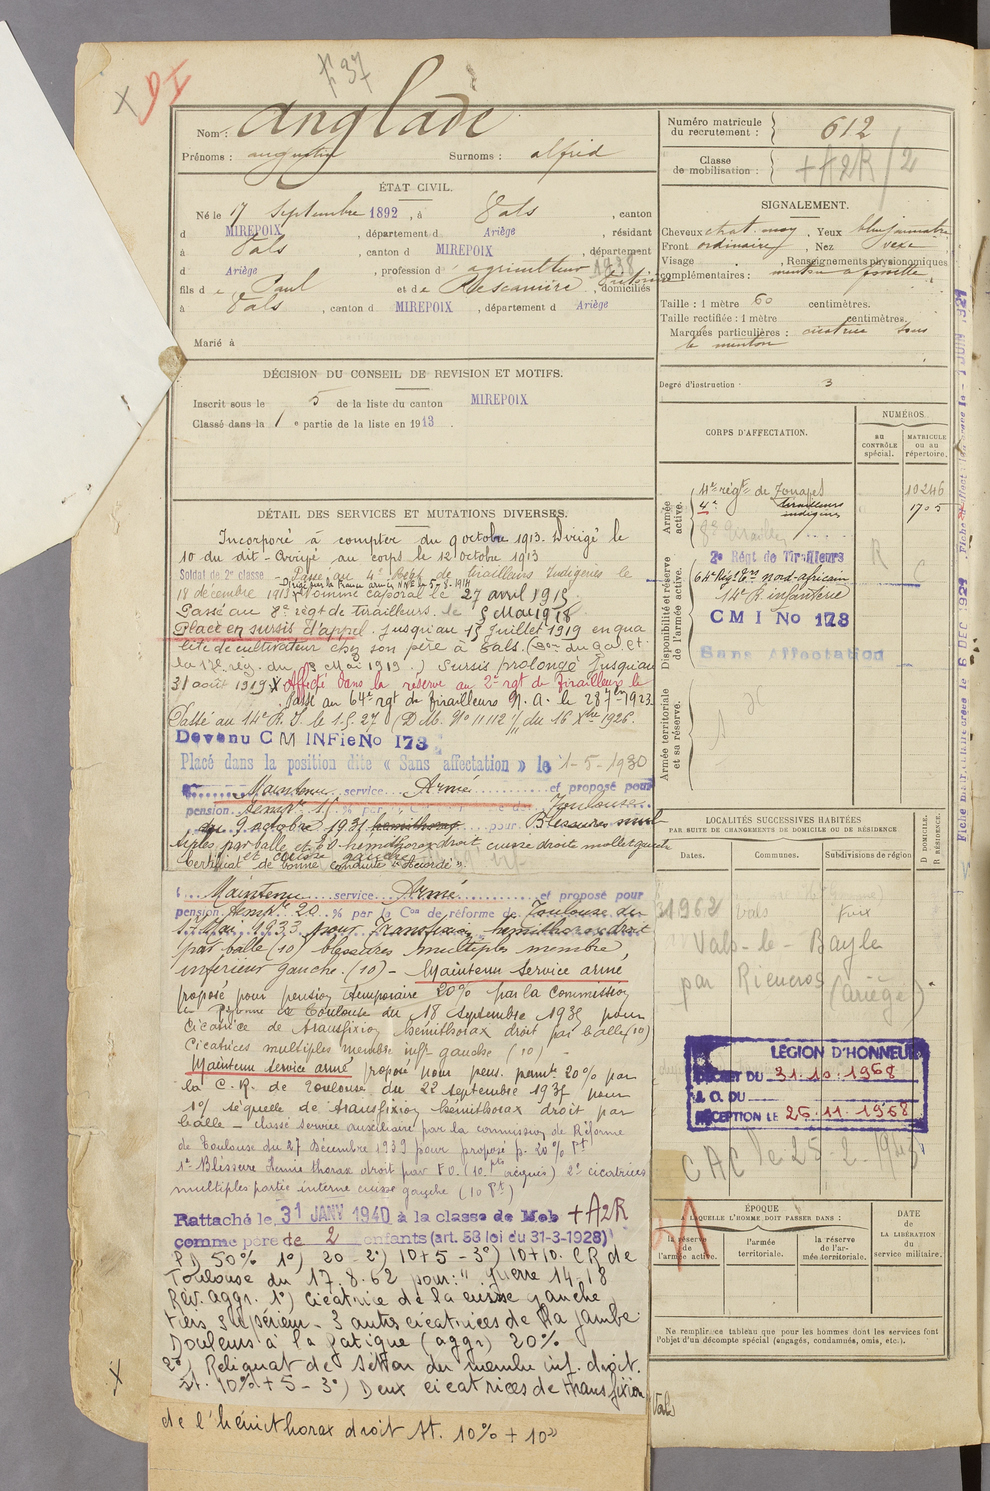 X 91
F 37
Nom : Anglade
Prénoms : augustin Surnoms : alfred
Numéro matricule du recrutement : 612
Classe de mobilisation : +A2R/2
ÉTAT CIVIL.
Né le 17 Septembre 1892, à Vals, canton
d MIREPOIX, département d Ariège, résidant
à Vals, canton d MIREPOIX, département
d Ariège, profession d agriculteur 1938
fils de Paul et de Rescanière, domiciliés
à Vals, canton d MIREPOIX, département d Ariège
Marié à
SIGNALEMENT.
Cheveux chat. moy, Yeux
Front ordinaire, Nez vexe
Visage , Renseignements physionomiques
complémentaires : menton à fossette
Taille : 1 mètre 60 centimètres.
Taille rectifiée : 1 mètre centimètres.
Marques particulières : cicatrice sous
le menton
Degré d'instruction : 3
DÉCISION DU CONSEIL DE REVISION ET MOTIFS.
Inscrit sous le 5 de la liste du canton MIREPOIX
Classé dans la 1e partie de la liste en 1913.
CORPS D'AFFECTATION.
NUMÉROS
AU CONTRÔLE spécial.
MATRICULE ou au répertoire.
Armée active.
4e régt de Zouaves 10246
4e tirailleurs indigènes 1705
8e Tirailleurs
Disponibilité et réserve de l'armée active.
2e Régt de Tirailleurs
64e Régt nord-africain
14e R. infanterie
CMI No 173
Sans Affectation
Armée territoriale et sa réserve.
DÉTAIL DES SERVICES ET MUTATIONS DIVERSES.
Incorporé à compter du 9 octobre 1913. Dirigé le
10 du dit - Arrivé au corps le 12 octobre 1913
Soldat de 2e classe - Passé au 4e Régt de tirailleurs Indigènes le
18 décembre 1913 X Nommé caporal le 27 avril 1915.
Passé au 8e régt de tirailleurs le 5 Mai 1918
Placé en sursis d'appel jusqu'au 15 Juillet 1919 en qua
lité de cultivateur chez son père à Vals. (Don du Gal Ct
la 17e rég. du 13 Mai 1919.) Sursis prolongé jusqu'au
31 août 1919 X Affecté dans la réserve au 2e rgt de Tirailleurs le
Passé au 64e rgt de tirailleurs N. A. le 28 7bre 1923
Passé au 14e R. I. le 1.5.27 (D.M. No 11112 du 16 Xbre 1926.
Devenu CM INFie No 173
Placé dans la position dite « Sans affectation » le 1-5-1930
Maintenu service Armé et proposé pour
pension temp. 15 % Toulouse
du 9 octobre 1931 pour Blessures mul
tiples par balle et EO hemithorax droit cuisse droite mollet gauche
et cuisse gauche
certificat de bonne conduite "Accordé"
Maintenu service Armé et proposé pour
pension temp. 20 % par la Con de réforme de Toulouse du
17 Mai 1933 pour Transfixion hémithorax droit
par balle (10) blessures multiples membre
inférieur gauche (10) - Maintenu service armé
proposé pour pension temporaire 20% par la commission
de Réforme de Toulouse du 18 septembre 1935 pour
cicatrice de transfixion hémithorax droit par balle (10)
Cicatrices multiples membre infr gauche (10) -
Maintenu service armé proposé pour pens. permte 20% par
la C.R. de Toulouse du 22 septembre 1937 pour
1o/ séquelle de transfixion hémithorax droit par
balle - classé service auxiliaire par la commission de Réforme
de Toulouse du 27 Décembre 1939 pour proposé p. 20% Pt
1o Blessure hemithorax droit par E.O. (10 pte acquis) 2o cicatrices
multiples partie interne cuisse gauche (10 Pt)
Rattaché le 31 JANV 1940 à la classe de Mob +A2R
comme père de 2 enfants (art. 58 loi du 31-3-1928)
P.D. 50% 1o) 20 - 2o) 10+5 - 3o) 10+10. CR de
Toulouse du 17.8.62 pour : " guerre 14.18
Rév. aggr. 1o) Cicatrice de la cuisse gauche
tiers supérieur - 3 autres cicatrices de la jambe
Douleurs à la fatigue (aggr) 20%
2o) Reliquat de séton du membre inf. droit.
St. 10% + 5 - 3o) Deux cicatrices de transfixion
de l'hémithorax droit St. 10% + 10 »
LOCALITÉS SUCCESSIVES HABITÉES
PAR SUITE DE CHANGEMENTS DE DOMICILE OU DE RÉSIDENCE
Dates. Communes. Subdivisions de région
D DOMICILE. R RÉSIDENCE.
1962 Vals Foix
Vals-le-Bayle
par Rieucros
(Ariège)
LÉGION D'HONNEUR
DÉCRET DU 31.10.1968
J. O. DU
RÉCEPTION LE 26.11.1968
CAC le 25-2-1945
ÉPOQUE
A LAQUELLE L'HOMME DOIT PASSER DANS :
la réserve de l'armée active.
l'armée territoriale.
la réserve de l'armée territoriale.
DATE de LA LIBÉRATION du service militaire.
Ne remplir ce tableau que pour les hommes dont les services font
l'objet d'un décompte spécial (engagés, condamnés, omis, etc.).
Vals
X